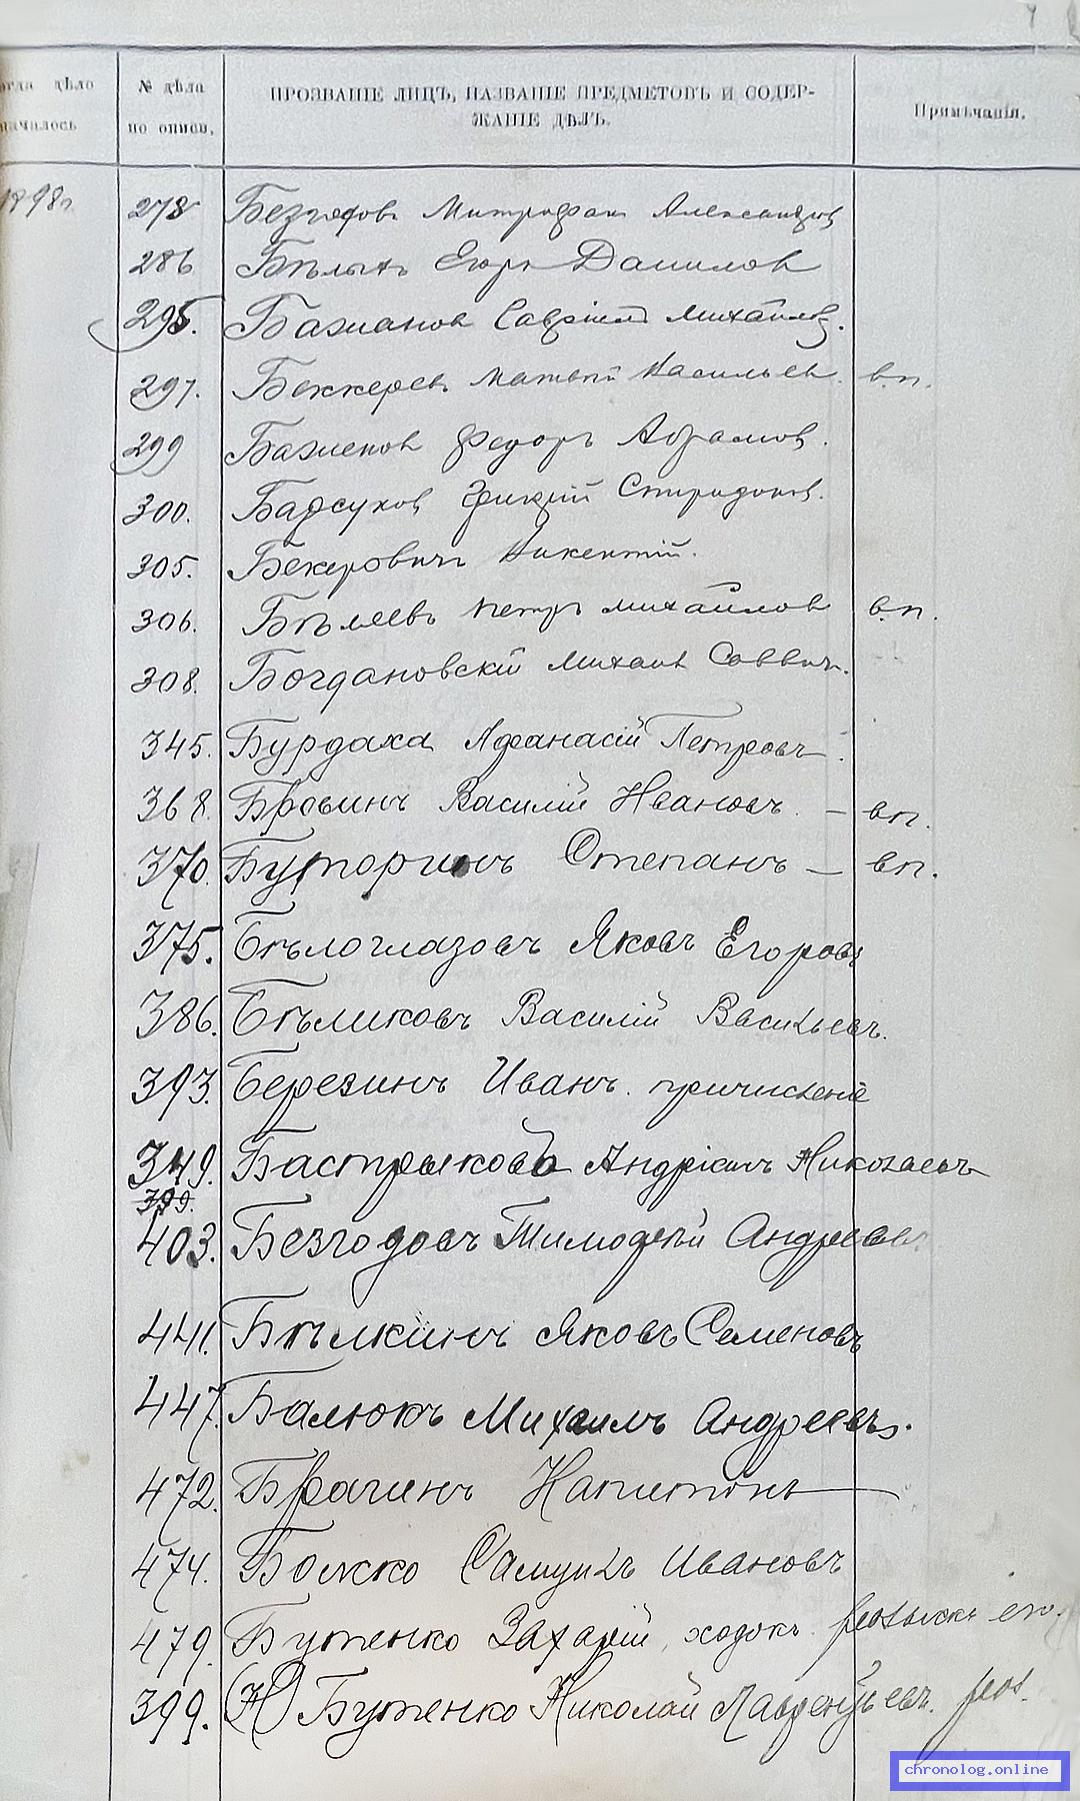 4
огда дѣло
началось
№ дѣла
по описи.
ПРОЗВАНІЕ ЛИЦЪ, НАЗВАНІЕ ПРЕДМЕТОВЪ И СОДЕР-
ЖАНІЕ ДѢЛЪ.
Примѣчанія.
1898г
278 Митрофан Александров
286 Бѣлыхъ Егоръ Данилов
295. Бажанов Гавріилъ Михайлов.
297. Беккеревъ Матвѣй Васильев. в.п.
299 Баженов Федоръ Абрамов.
300. Барсуков Спиридонов.
305. Бекеровичъ Викентій.
306. Бѣляевъ Петръ Михайлов в.п.
308. Богдановскій Михаил Саввич.
345. Бурдаха Афанасій Петровъ
368. Бровинъ Василій Ивановъ. — вп.
370. Буторинъ Степанъ — вп.
375. Бѣлоглазовъ Яковъ Егоровъ
386. Бѣликовъ Василій Васильевъ.
393. Березинъ Иванъ. причисленіе
349. Бастрыковъ Андріанъ Николаевъ
399.
403. Безгодовъ Тимофей Андреевъ.
441. Бѣлкинъ Яковъ Семеновъ
447. Балюкъ Михаилъ Андреевъ.
472. Брагинъ Капитонъ
474. Божко Самуилъ Ивановъ
479. Бутенко Захарій, ходокъ. розыскъ его.
399. (Н) Бутенко Николай Лаврентьевъ. роз.
chronolog.online